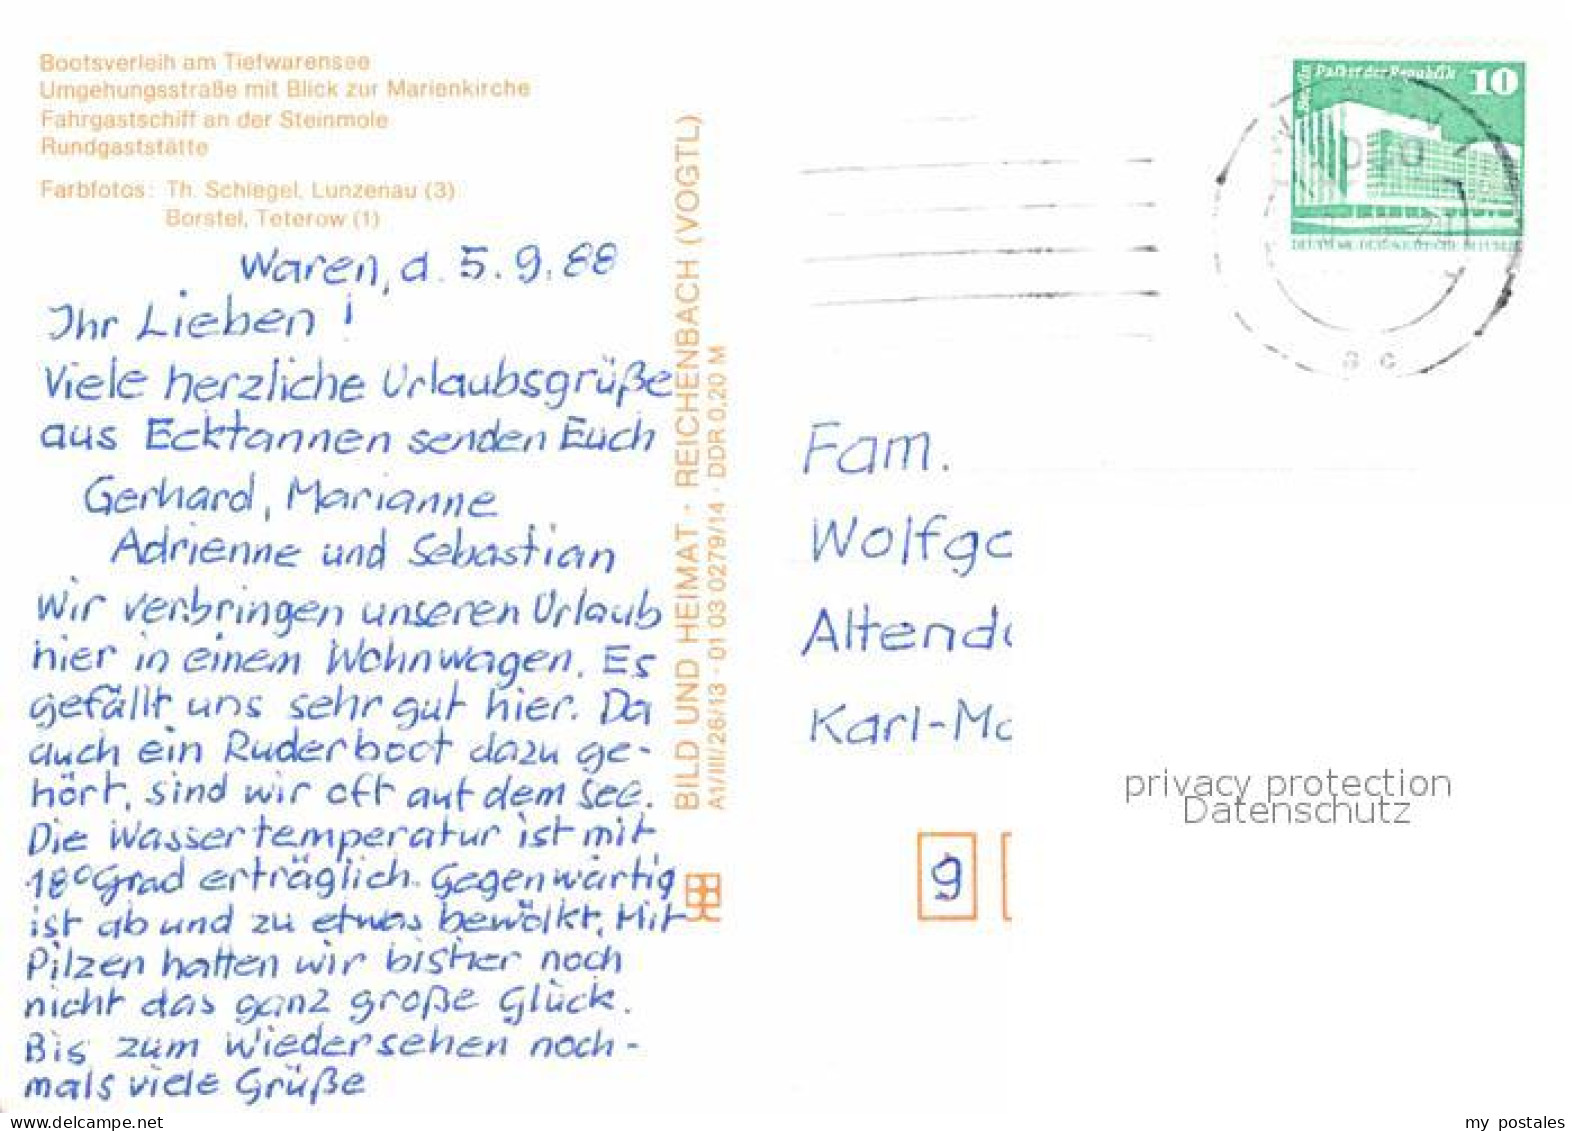 Bootsverleih am Tiefwarensee
Umgehungsstraße mit Blick zur Marienkirche
Fahrgastschiff an der Steinmole
Rundgaststätte
Farbfotos: Th. Schlegel, Lunzenau (3)
Borstel, Teterow (1)
Waren, d. 5.9.88
Ihr Lieben!
Viele herzliche Urlaubsgrüße
aus Ecktannen senden Euch
Gerhard, Marianne
Adrienne und Sebastian
Wir verbringen unseren Urlaub
hier in einem Wohnwagen. Es
gefällt uns sehr gut hier. Da
auch ein Ruderboot dazu ge-
hört, sind wir oft auf dem See.
Die Wassertemperatur ist mit
18° Grad erträglich. Gegenwärtig
ist ab und zu etwas bewölkt. Mit
Pilzen hatten wir bisher noch
nicht das ganz große Glück.
Bis zum Wiedersehen noch-
mals viele Grüße
BILD UND HEIMAT · REICHENBACH (VOGTL)
A1/III/26/13 · 01 03 0279/14 · DDR 0,20 M
Berlin Palast der Republik 10
DEUTSCHE DEMOKRATISCHE REPUBLIK
Fam.
Wolfga
Altendo
Karl-Ma
9
privacy protection
Datenschutz
www.delcampe.net
my_postales